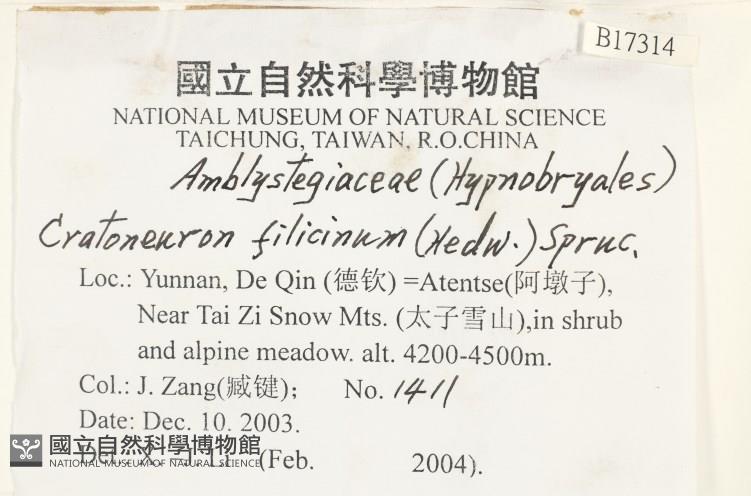 B17314
國立自然科學博物館
NATIONAL MUSEUM OF NATURAL SCIENCE
TAICHUNG, TAIWAN, R.O.CHINA
Amblystegiaceae (Hypnobryales)
Cratoneuron filicinum (Hedw.) Spruc.
Loc.: Yunnan, De Qin (德钦) =Atentse(阿墩子),
Near Tai Zi Snow Mts. (太子雪山),in shrub
and alpine meadow. alt. 4200-4500m.
Col.: J. Zang(臧键); No. 1411
Date: Dec. 10. 2003.
國立自然科學博物館
NATIONAL MUSEUM OF NATURAL SCIENCE
(Feb. 2004).